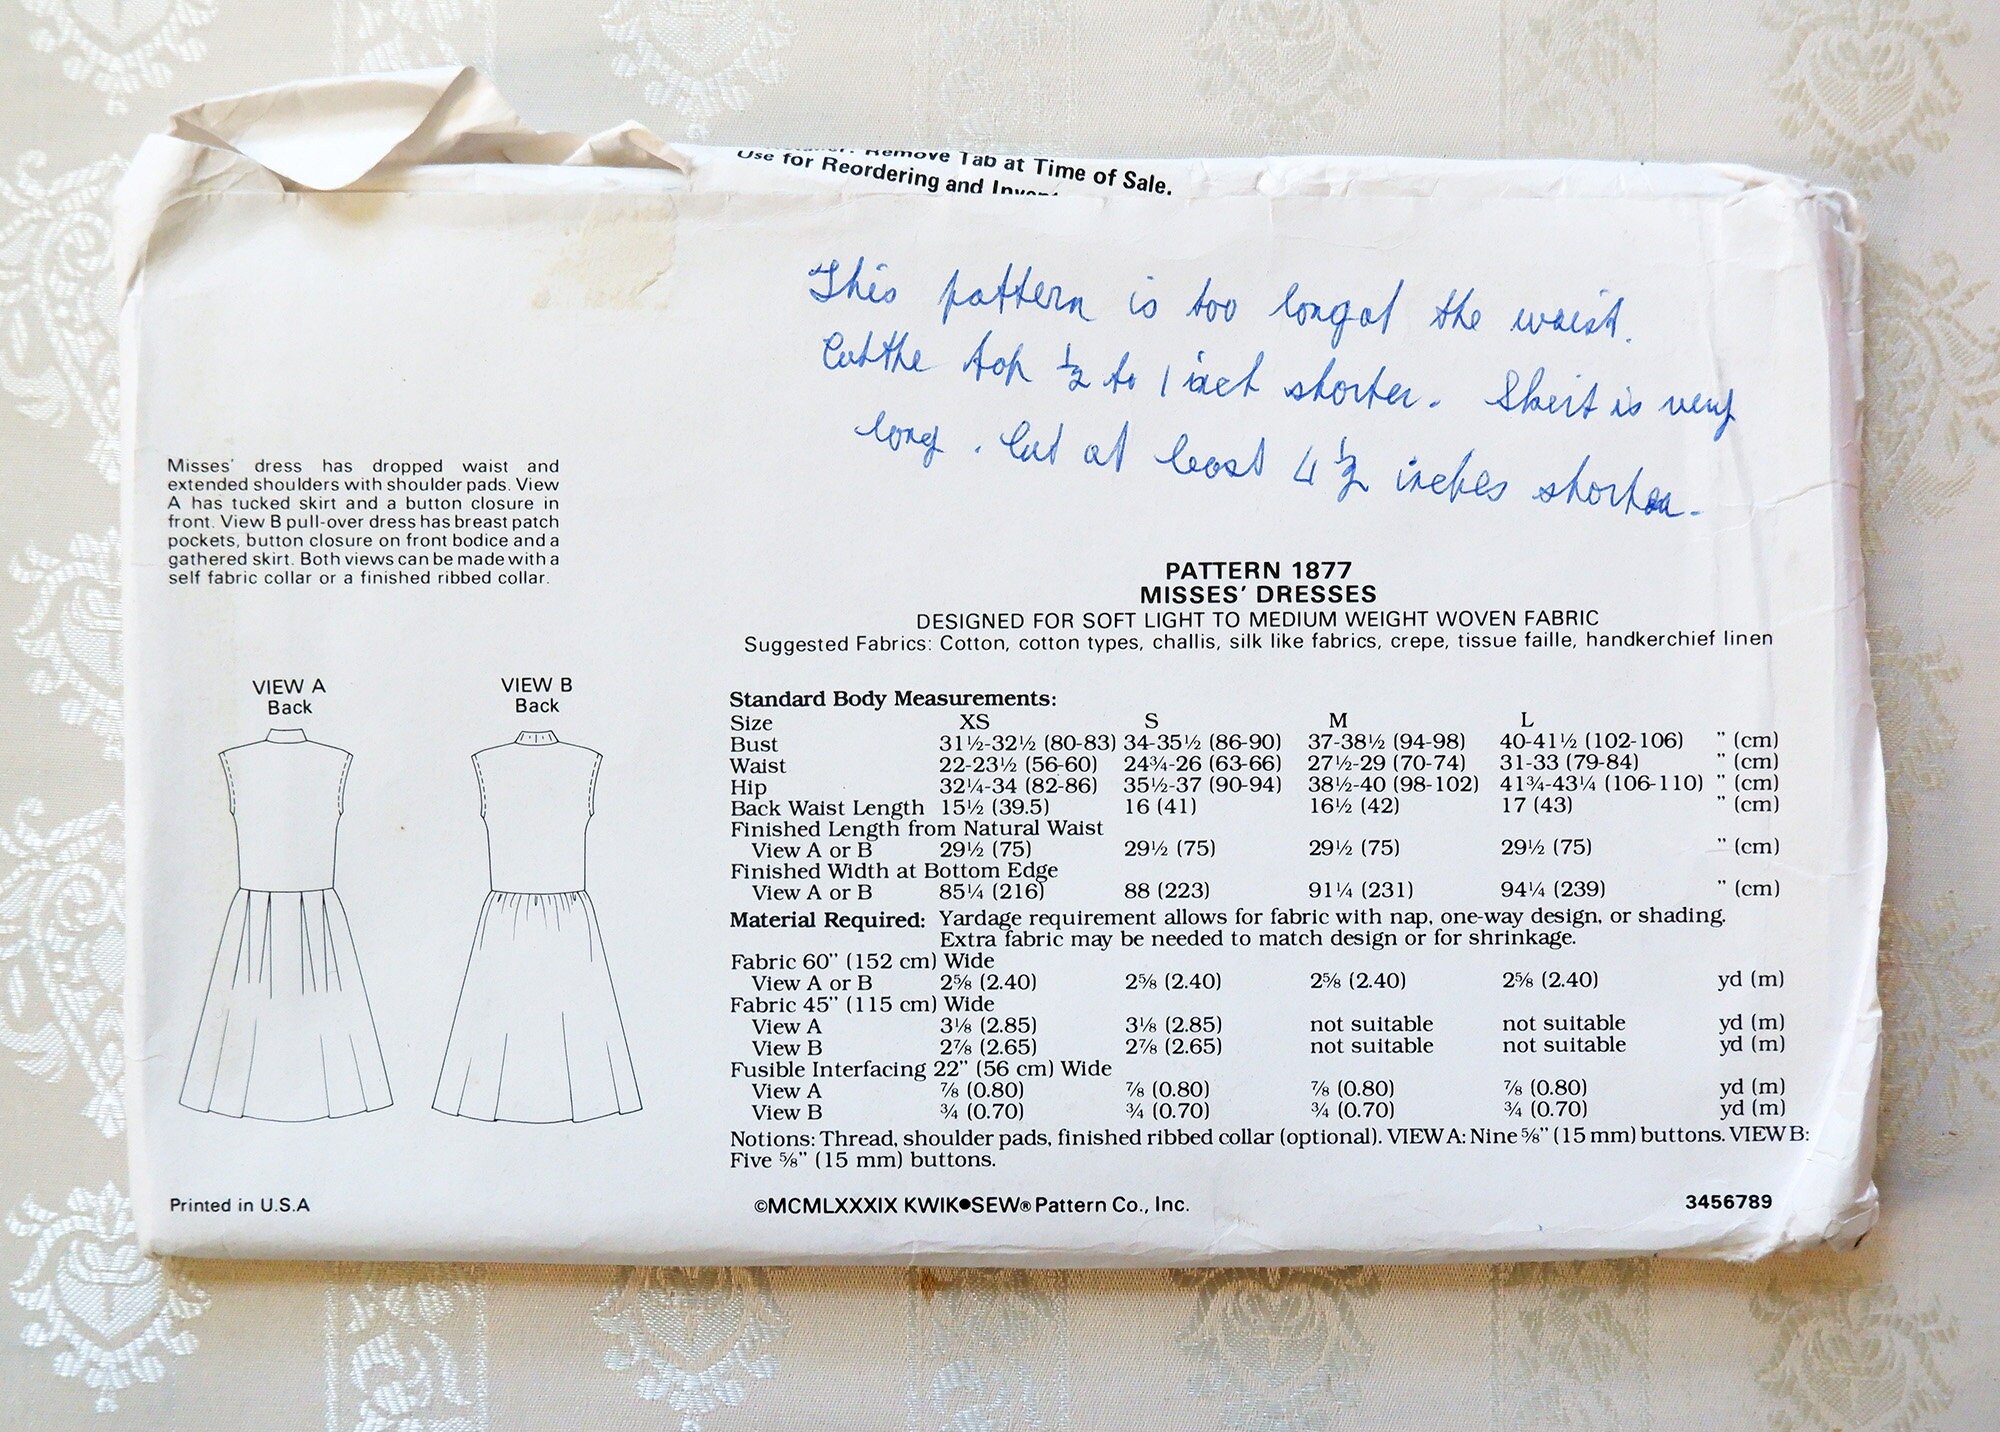 Remove Tab at Time of Sale.
Use for Reordering and
This pattern is too long at the waist.
Cut the top ½ to 1 inch shorter. Skirt is very
long. Cut at least 4 ½ inches shorter.
Misses' dress has dropped waist and
extended shoulders with shoulder pads. View
A has tucked skirt and a button closure in
front. View B pull-over dress has breast patch
pockets, button closure on front bodice and a
gathered skirt. Both views can be made with a
self fabric collar or a finished ribbed collar.
VIEW A
Back
VIEW B
Back
Printed in U.S.A
PATTERN 1877
MISSES' DRESSES
DESIGNED FOR SOFT LIGHT TO MEDIUM WEIGHT WOVEN FABRIC
Suggested Fabrics: Cotton, cotton types, challis, silk like fabrics, crepe, tissue faille, handkerchief linen
Standard Body Measurements:
Size XS S M L
Bust 31½-32½ (80-83) 34-35½ (86-90) 37-38½ (94-98) 40-41½ (102-106) " (cm)
Waist 22-23½ (56-60) 24¾-26 (63-66) 27½-29 (70-74) 31-33 (79-84) " (cm)
Hip 32¼-34 (82-86) 35½-37 (90-94) 38½-40 (98-102) 41¾-43¼ (106-110) " (cm)
Back Waist Length 15½ (39.5) 16 (41) 16½ (42) 17 (43) " (cm)
Finished Length from Natural Waist
View A or B 29½ (75) 29½ (75) 29½ (75) 29½ (75) " (cm)
Finished Width at Bottom Edge
View A or B 85¼ (216) 88 (223) 91¼ (231) 94¼ (239) " (cm)
Material Required: Yardage requirement allows for fabric with nap, one-way design, or shading.
Extra fabric may be needed to match design or for shrinkage.
Fabric 60" (152 cm) Wide
View A or B 2⅝ (2.40) 2⅝ (2.40) 2⅝ (2.40) 2⅝ (2.40) yd (m)
Fabric 45" (115 cm) Wide
View A 3⅛ (2.85) 3⅛ (2.85) not suitable not suitable yd (m)
View B 2⅞ (2.65) 2⅞ (2.65) not suitable not suitable yd (m)
Fusible Interfacing 22" (56 cm) Wide
View A ⅞ (0.80) ⅞ (0.80) ⅞ (0.80) ⅞ (0.80) yd (m)
View B ¾ (0.70) ¾ (0.70) ¾ (0.70) ¾ (0.70) yd (m)
Notions: Thread, shoulder pads, finished ribbed collar (optional). VIEW A: Nine ⅝" (15 mm) buttons. VIEW B:
Five ⅝" (15 mm) buttons.
©MCMLXXXIX KWIK●SEW® Pattern Co., Inc.
3456789